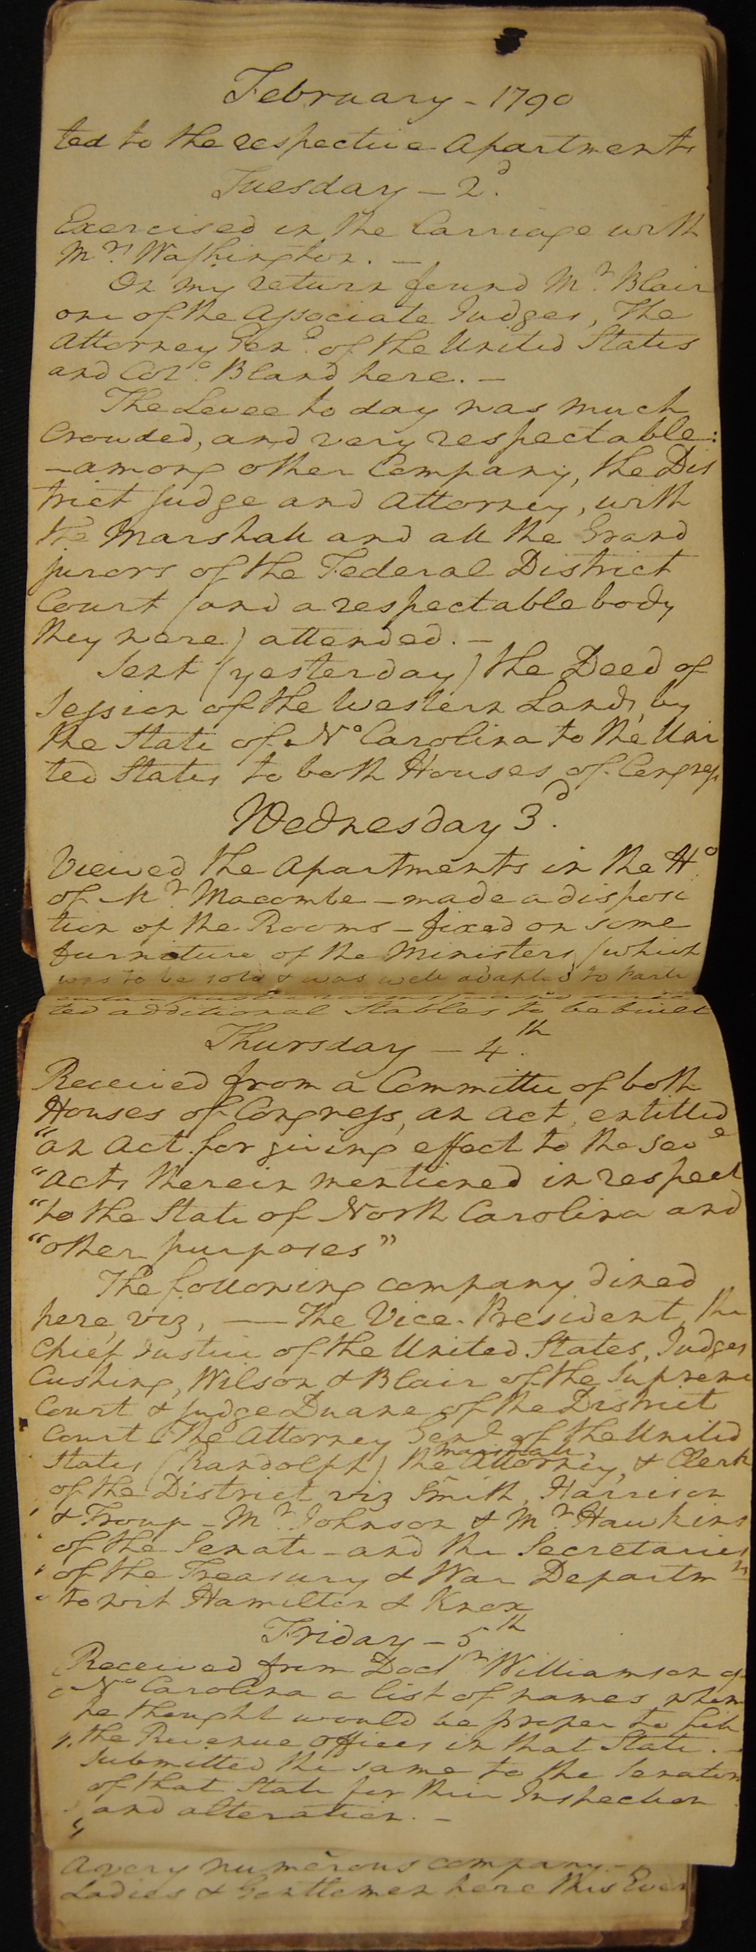 February - 1790
ted to the respective Apartments
Tuesday - 2d.
Exercised in the Carriage with
Mrs. Washington. -
On my return found Mr. Blair
one of the Associate Judges, The
Attorney Genl. of the United States
and Colo. Bland here. -
The Levee to day was much
Crouded, and very respectable:
- among other Company, the Dis
trict judge and Attorney, with
the Marshall and all the Grand
jurors of the Federal District
Court (and a respectable body
they were) attended. -
Sent (yesterday) the Deed of
Session of the Western Lands by
the State of No. Carolina to the Uni
ted States to both Houses of Congress
Wednesday 3d.
Viewed the Apartments in the Ho.
of Mr. Macombe - made a disposi
tion of the Rooms - fixed on some
furniture of the Ministers (which
was to be sold & was well adapted to parti
ted additional Stables to be built
Thursday - 4th.
Received from a Committee of both
Houses of Congress, an act, entitled
"an Act for giving effect to the Seve
"Acts therein mentioned in respect
"to the State of North Carolina and
"other purposes"
The following company dined
here viz, — The Vice-President, the
Chief Justice of the United States, Judges
Cushing, Wilson & Blair of the Supreme
Court & judge Duane of the District
Court - the Attorney Genl. of the United
States (Randolph) the marshall, Attorney, & Clerk
of the District viz Smith, Harrison
& Troup - Mr. Johnson & Mr. Hawkins
of the Senate - and the Secretaries
of the Treasury & War Departmts
to wit Hamilton & Knox
Friday - 5th
Received from Doctr. Williamson of
No. Carolina a list of names whom
he thought would be proper to fill
the Revenue offices in that State. -
submitted the same to the Senators
of that State for their Inspection
and alteration. -
A very numerous company -
Ladies & Gentlemen here this Even